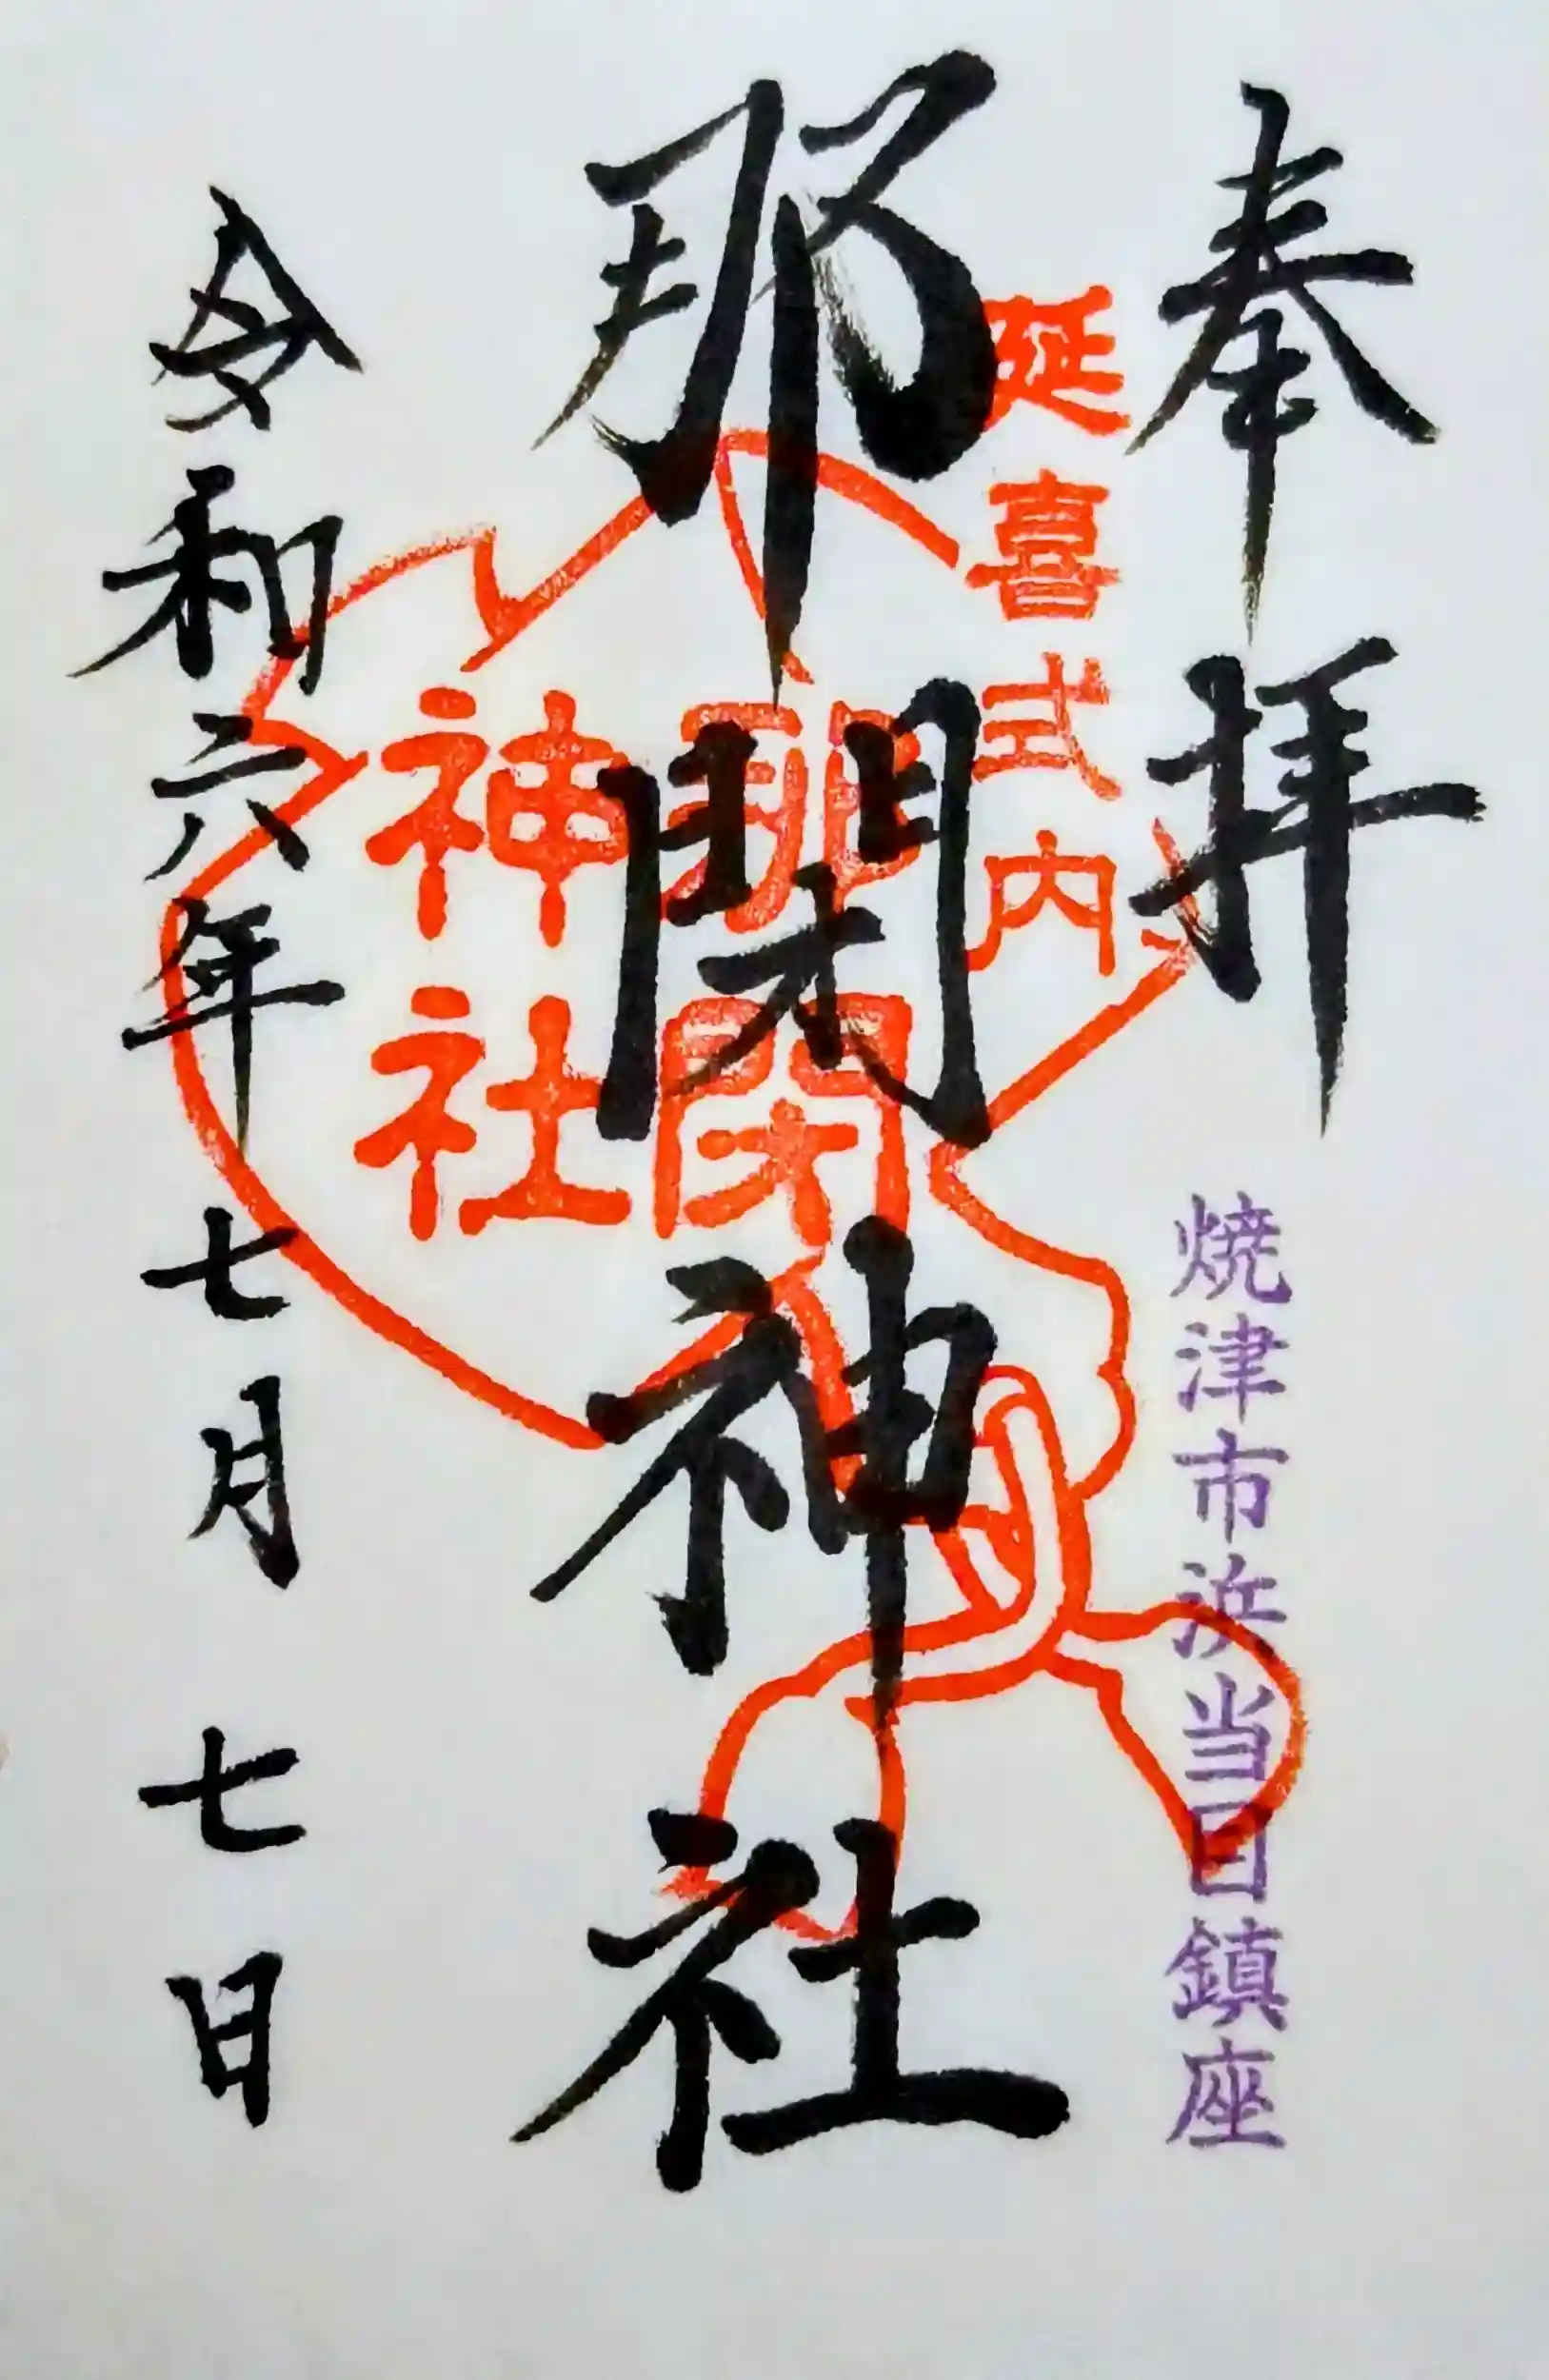 奉拝
焼津市浜当目鎮座
延喜式内
那閉神社
那閉
神社
令和六年七月七日